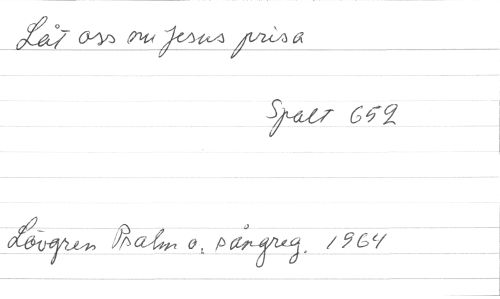 Låt oss nu Jesus prisa
Spalt 652
Lövgren Psalm o. sångreg. 1964